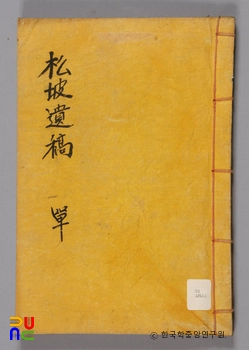 松坡遺稿
單
PUNE
© 한국학중앙연구원